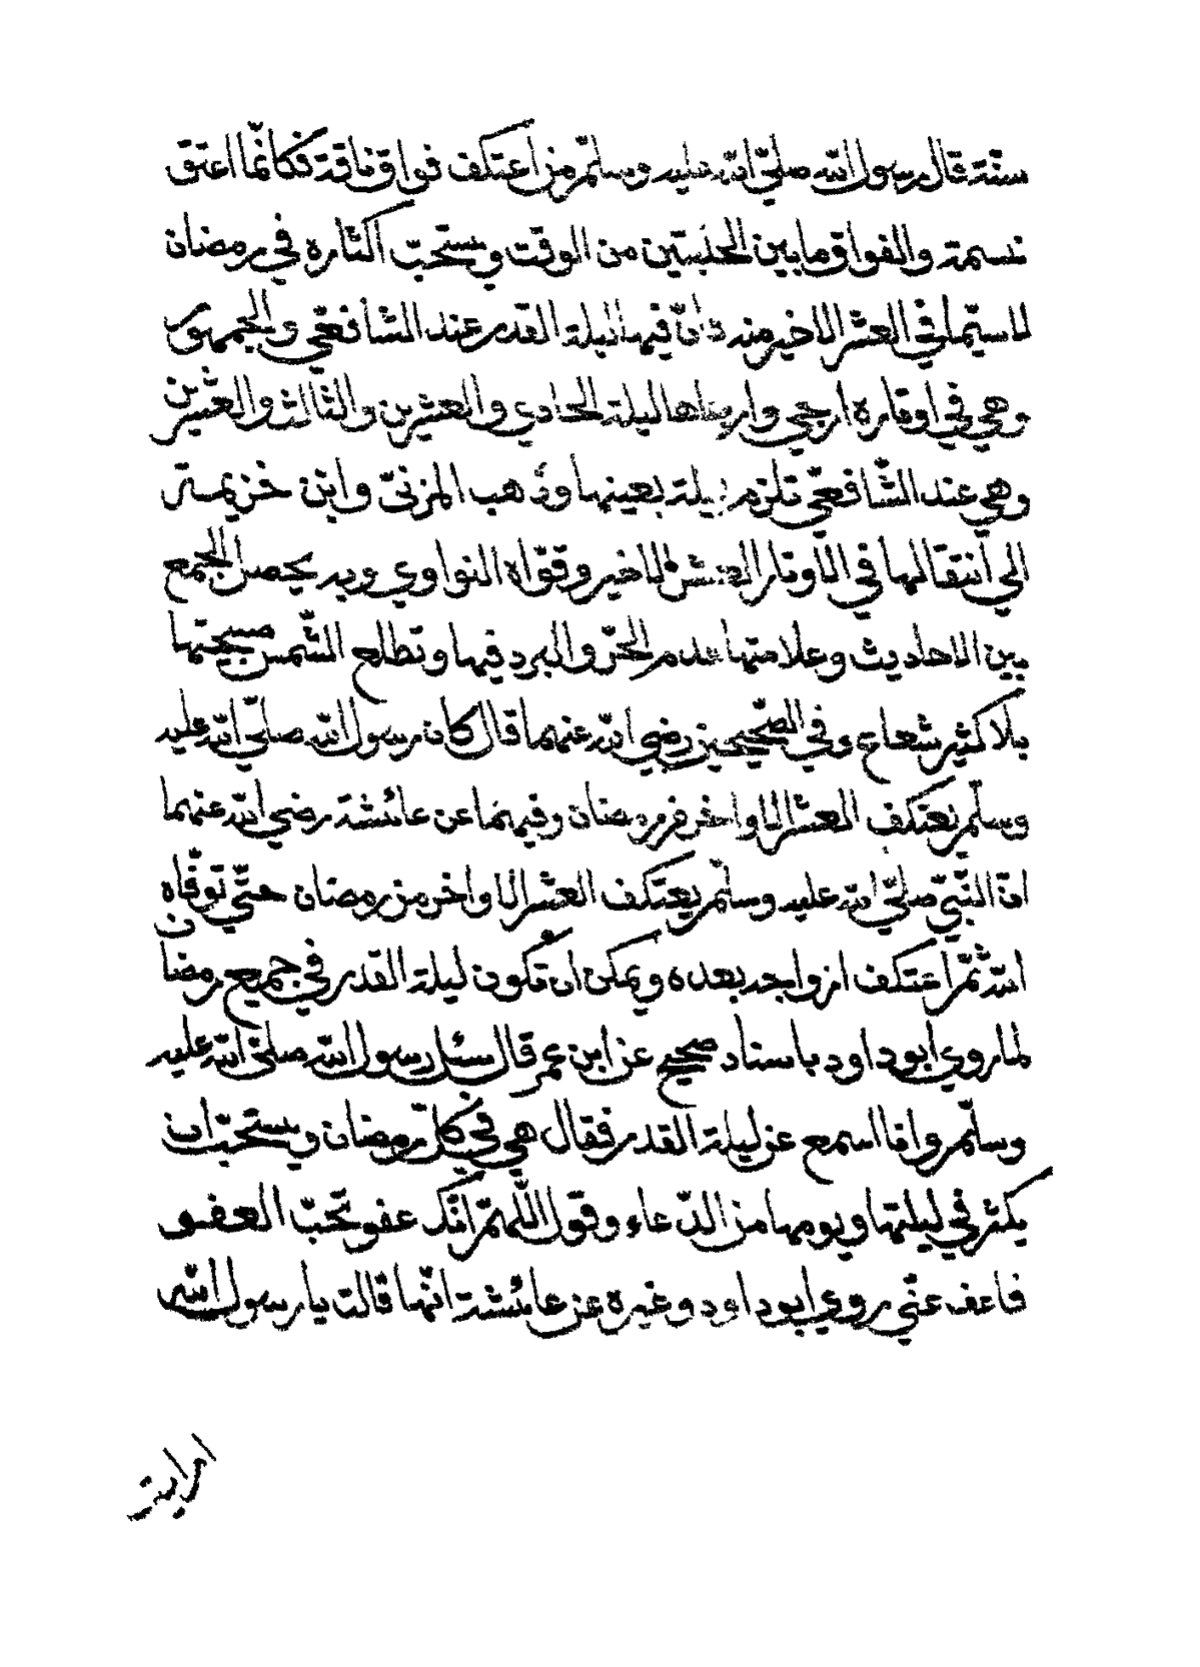 سنّة قال رسول الله صلّي الله عليه وسلّم من اعتكف فواق ناقة فكانّما اعتق
نسمة والفواق ما بين الحلبتين من الوقت ويستحبّ اكثاره في رمضان
لاسيّما في العشر الاخير منه لانّ فيها ليلة القدر عند الشافعي والجمهور
وهي في اوتاره ارجي وارجاها ليلة الحادي والعشرين والثالث والعشرين
وهي عند الشّافعيّ تلزم ليلة بعينها وذهب المزنيّ وابن خزيمة
الي انتقالها في الاوتار العشر الاخير وقوّاه النواوي وبه يحصل الجمع
بين الاحاديث وعلامتها عدم الحرّ والبرد فيها وتطلع الشّمس صبيحتها
بلا كثير شعاع وفي الصّحيحين رضي الله عنهما قال كان رسول الله صلّي الله عليه
وسلّم يعتكف العشر الاواخر من رمضان وفيهما عن عائشة رضي الله عنهما
انّ النّبيّ صلّي الله عليه وسلّم يعتكف العشر الاواخر من رمضان حتّي توفّاه
الله ثمّ اعتكف ازواجه بعده ويمكن ان تكون ليلة القدر في جميع رمضان
لما روي ابو داود باسناد صحيح عن ابن عمر قال سئل رسول الله صلي الله عليه
وسلّم وانا اسمع عن ليلة القدر فقال هي في كلّ رمضان ويستحبّ ان
يكثر في ليلتها ويومها من الدّعاء وقول اللّهمّ انّك عفو تحبّ العفو
فاعف عنّي روي ابو داود وغيره عن عائشة انّها قالت يا رسول الله
ارايت